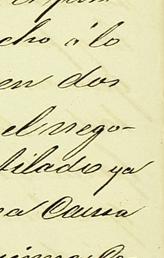 cho á lo
en dos
el nego-
tilado ya
na Causa